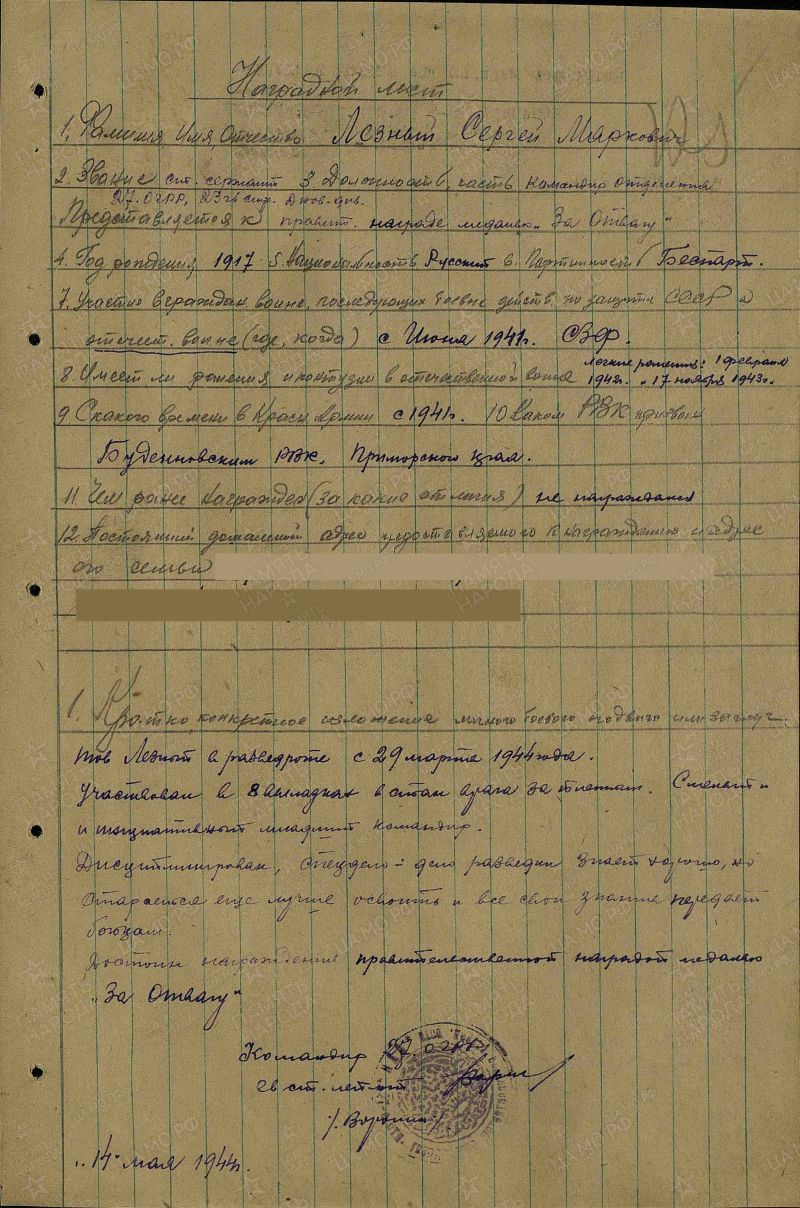 Наградной лист
1. Фамилия, Имя, Отчество Лезный Сергей Маркович
2. Звание ст. сержант 3. Должность, часть командир отделения
27 ОГРР, 23 гв стр. Дновс. див.
Представляется к правит. награде медалью „За Отвагу"
4. Год рождения 1917 5. Национальность Русский 6. Партийность Беспарт.
7. Участие в граждан. войне, последующих боевых действ. по защите СССР и
отечест. войне (где, когда) с Июня 1941г. СЗФ.
легкие ранения: 1 февраля
8. Имеет ли ранения и контузии в отечественной войне 1943г. и 17 ноября 1943г.
9. С какого времени в Красн. Армии с 1941г. 10 Каким РВК призван
Буденновским РВК. Приморского края.
11. Чем ранее награжден (за какие отличия) не награждался
12. Постоянный домашний адрес представляемого к награждению и адрес
его семьи
1. Кратко, конкретное изложение личного боевого подвига или заслуг.
тов Лезный в разведроте с 29 марта 1944 года.
Участвовал в 8 вылазках в стан врага за пленным. Смелый и
и инициативный младший командир.
Дисциплинирован, спецдело - дело разведки знает хорошо, но
старается еще лучше освоить и все свои знания передает
бойцам.
Достоин награждения правительственной наградой медалью
„За Отвагу"
Командир 27 ОГРР
гв ст. лейт-нт
/. Воронин /.
„14" мая 1944г.